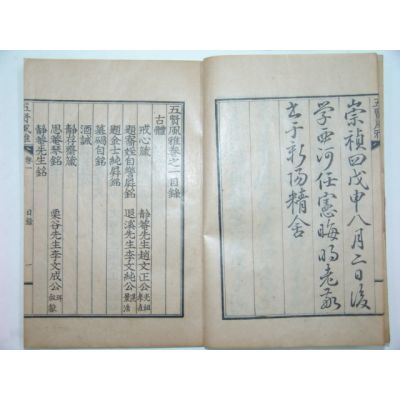 五賢風雅
崇禎四戊申八月二日後
学西河任憲晦老敬
書于新陽精舍
五賢風雅卷之一目錄
古體
戒心箴 靜菴先生趙文正公 光祖 孝直
題姪自警屛銘 退溪先生李文純公 滉 景浩
題金士純屛銘
墓碣自銘
酒誡
靜存齋箴
思菴琴銘 栗谷先生李文成公 珥 叔獻
靜菴先生銘
五賢風雅 卷一 目錄 一